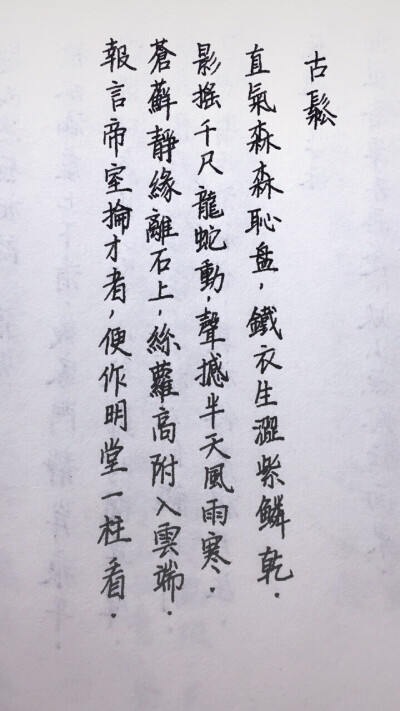 古鬆
直氣森森恥盘，鐵衣生澀紫鱗乾.
影搖千尺龍蛇動，聲撼半天風雨寒.
蒼蘚靜緣離石上，絲蘿高附入雲端.
報言帝室掄才者，便作明堂一柱看.